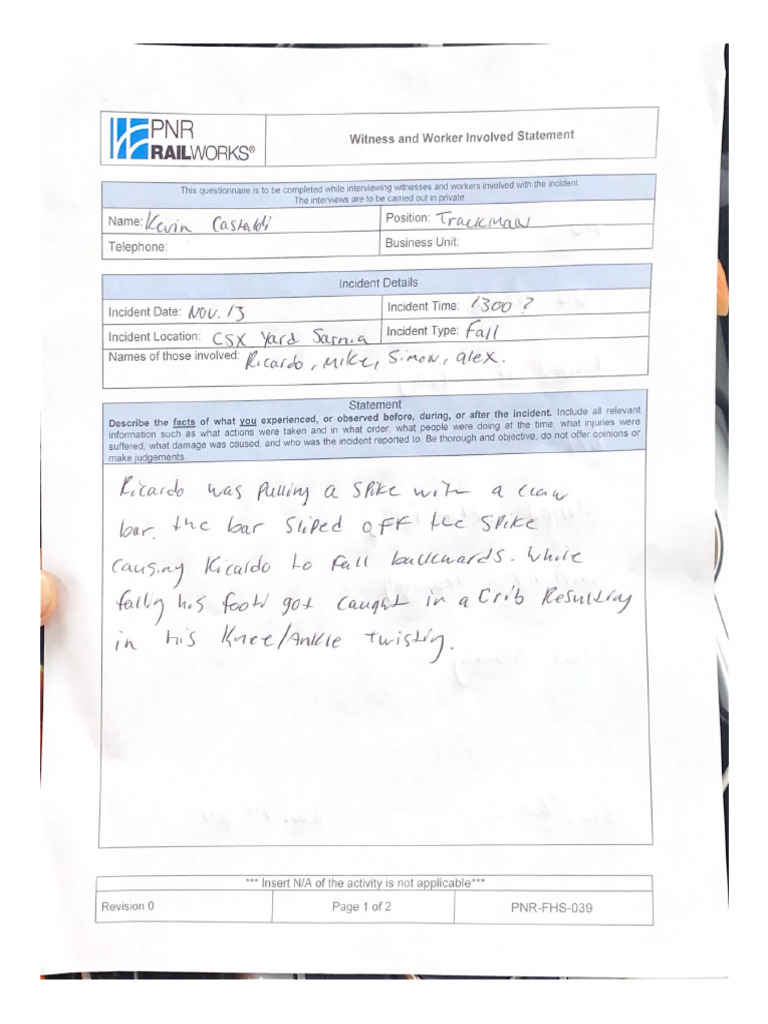 PNR
RAILWORKS®
Witness and Worker Involved Statement
This questionnaire is to be completed while interviewing witnesses and workers involved with the incident.
The interviews are to be carried out in private.
Name: Kevin
Position: Trackman
Telephone:
Business Unit:
Incident Details
Incident Date: Nov. 13
Incident Time: 1300 ?
Incident Location: CSX Yard Sarnia
Incident Type: Fall
Names of those involved: Ricardo, Mike, Simon, alex.
Statement
Describe the facts of what you experienced, or observed before, during, or after the incident. Include all relevant
information such as what actions were taken and in what order, what people were doing at the time, what injuries were
suffered, what damage was caused, and who was the incident reported to. Be thorough and objective, do not offer opinions or
make judgements
Ricardo was pulling a spike with a claw
bar. the bar sliped off the spike
causing Ricardo to fall backwards. while
falling his foot got caught in a crib Resulting
in his Knee/Ankle twisting.
*** Insert N/A of the activity is not applicable***
Revision 0
Page 1 of 2
PNR-FHS-039